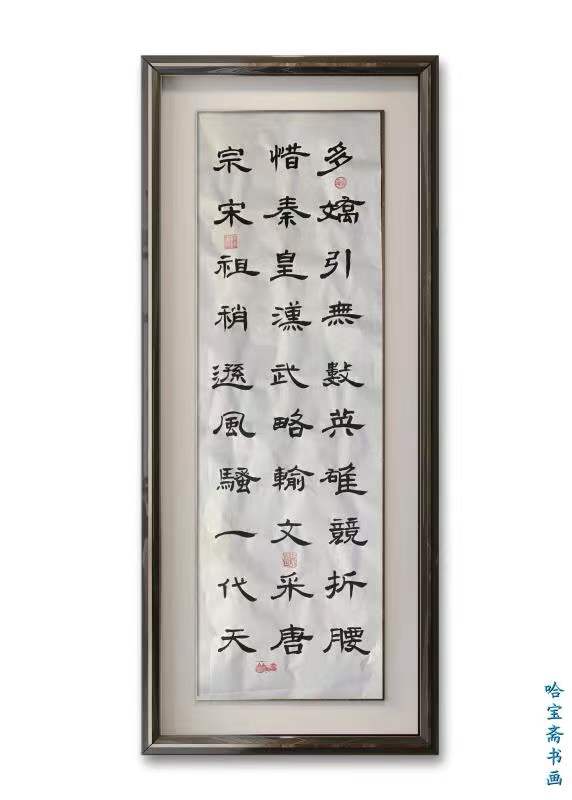 多嬌引無數英雄競折腰
惜秦皇漢武略輸文采唐
宗宋祖稍遜風騷一代天
哈宝斋书画